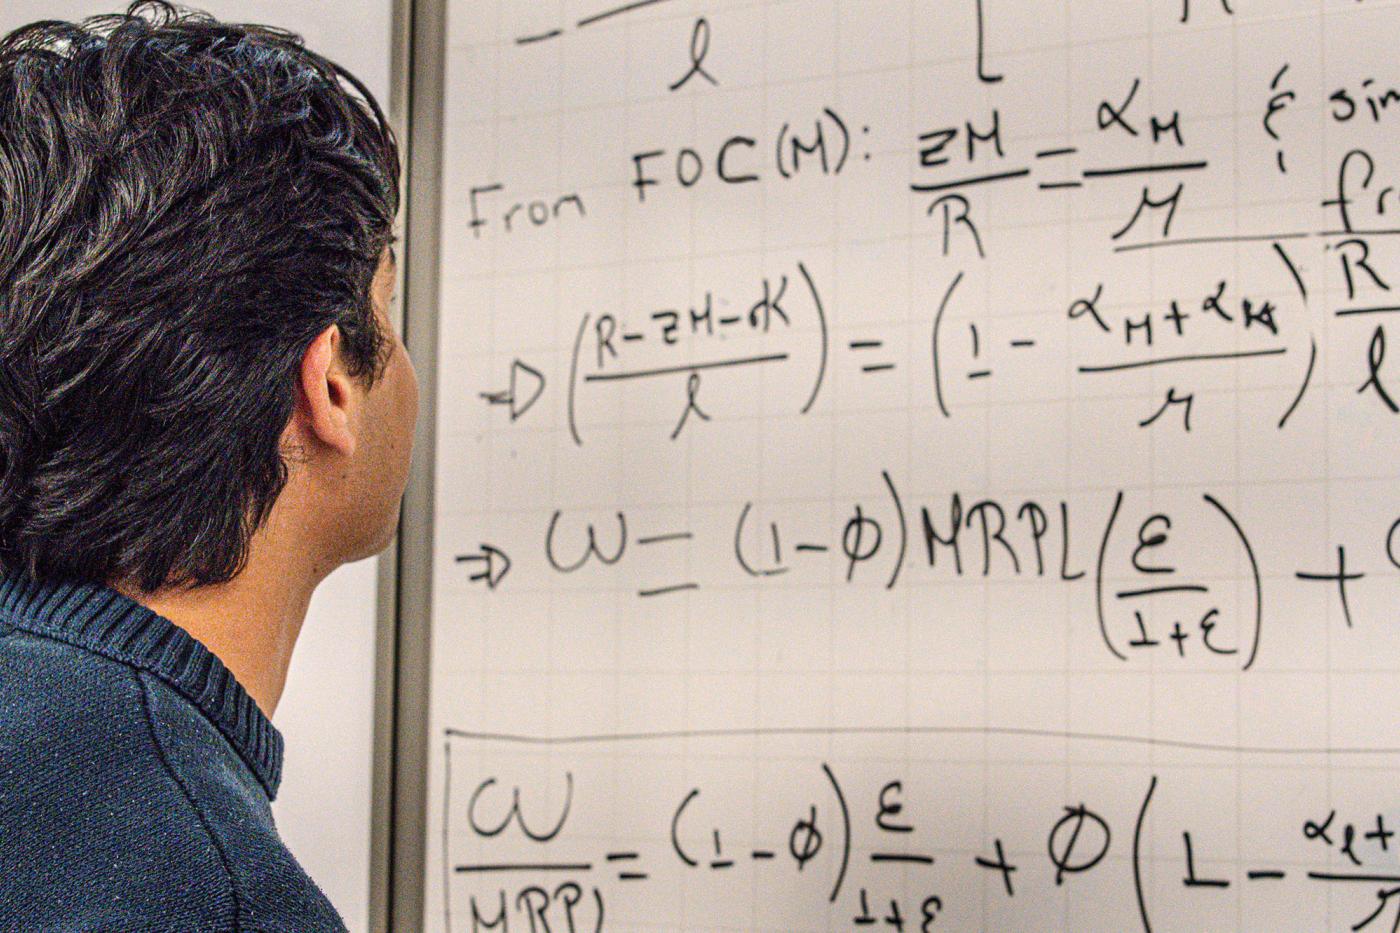 l
From FOC(M): zM/R = α_M/μ & sim
fr
⇒ ((R-zM-rK)/l) = (1 - (α_M+α_K)/μ) R/l
⇒ ω = (1-ϕ)MRPL(ε/(1+ε)) +
ω/MRPL = (1-ϕ) ε/(1+ε) + ϕ(1 - α_l+